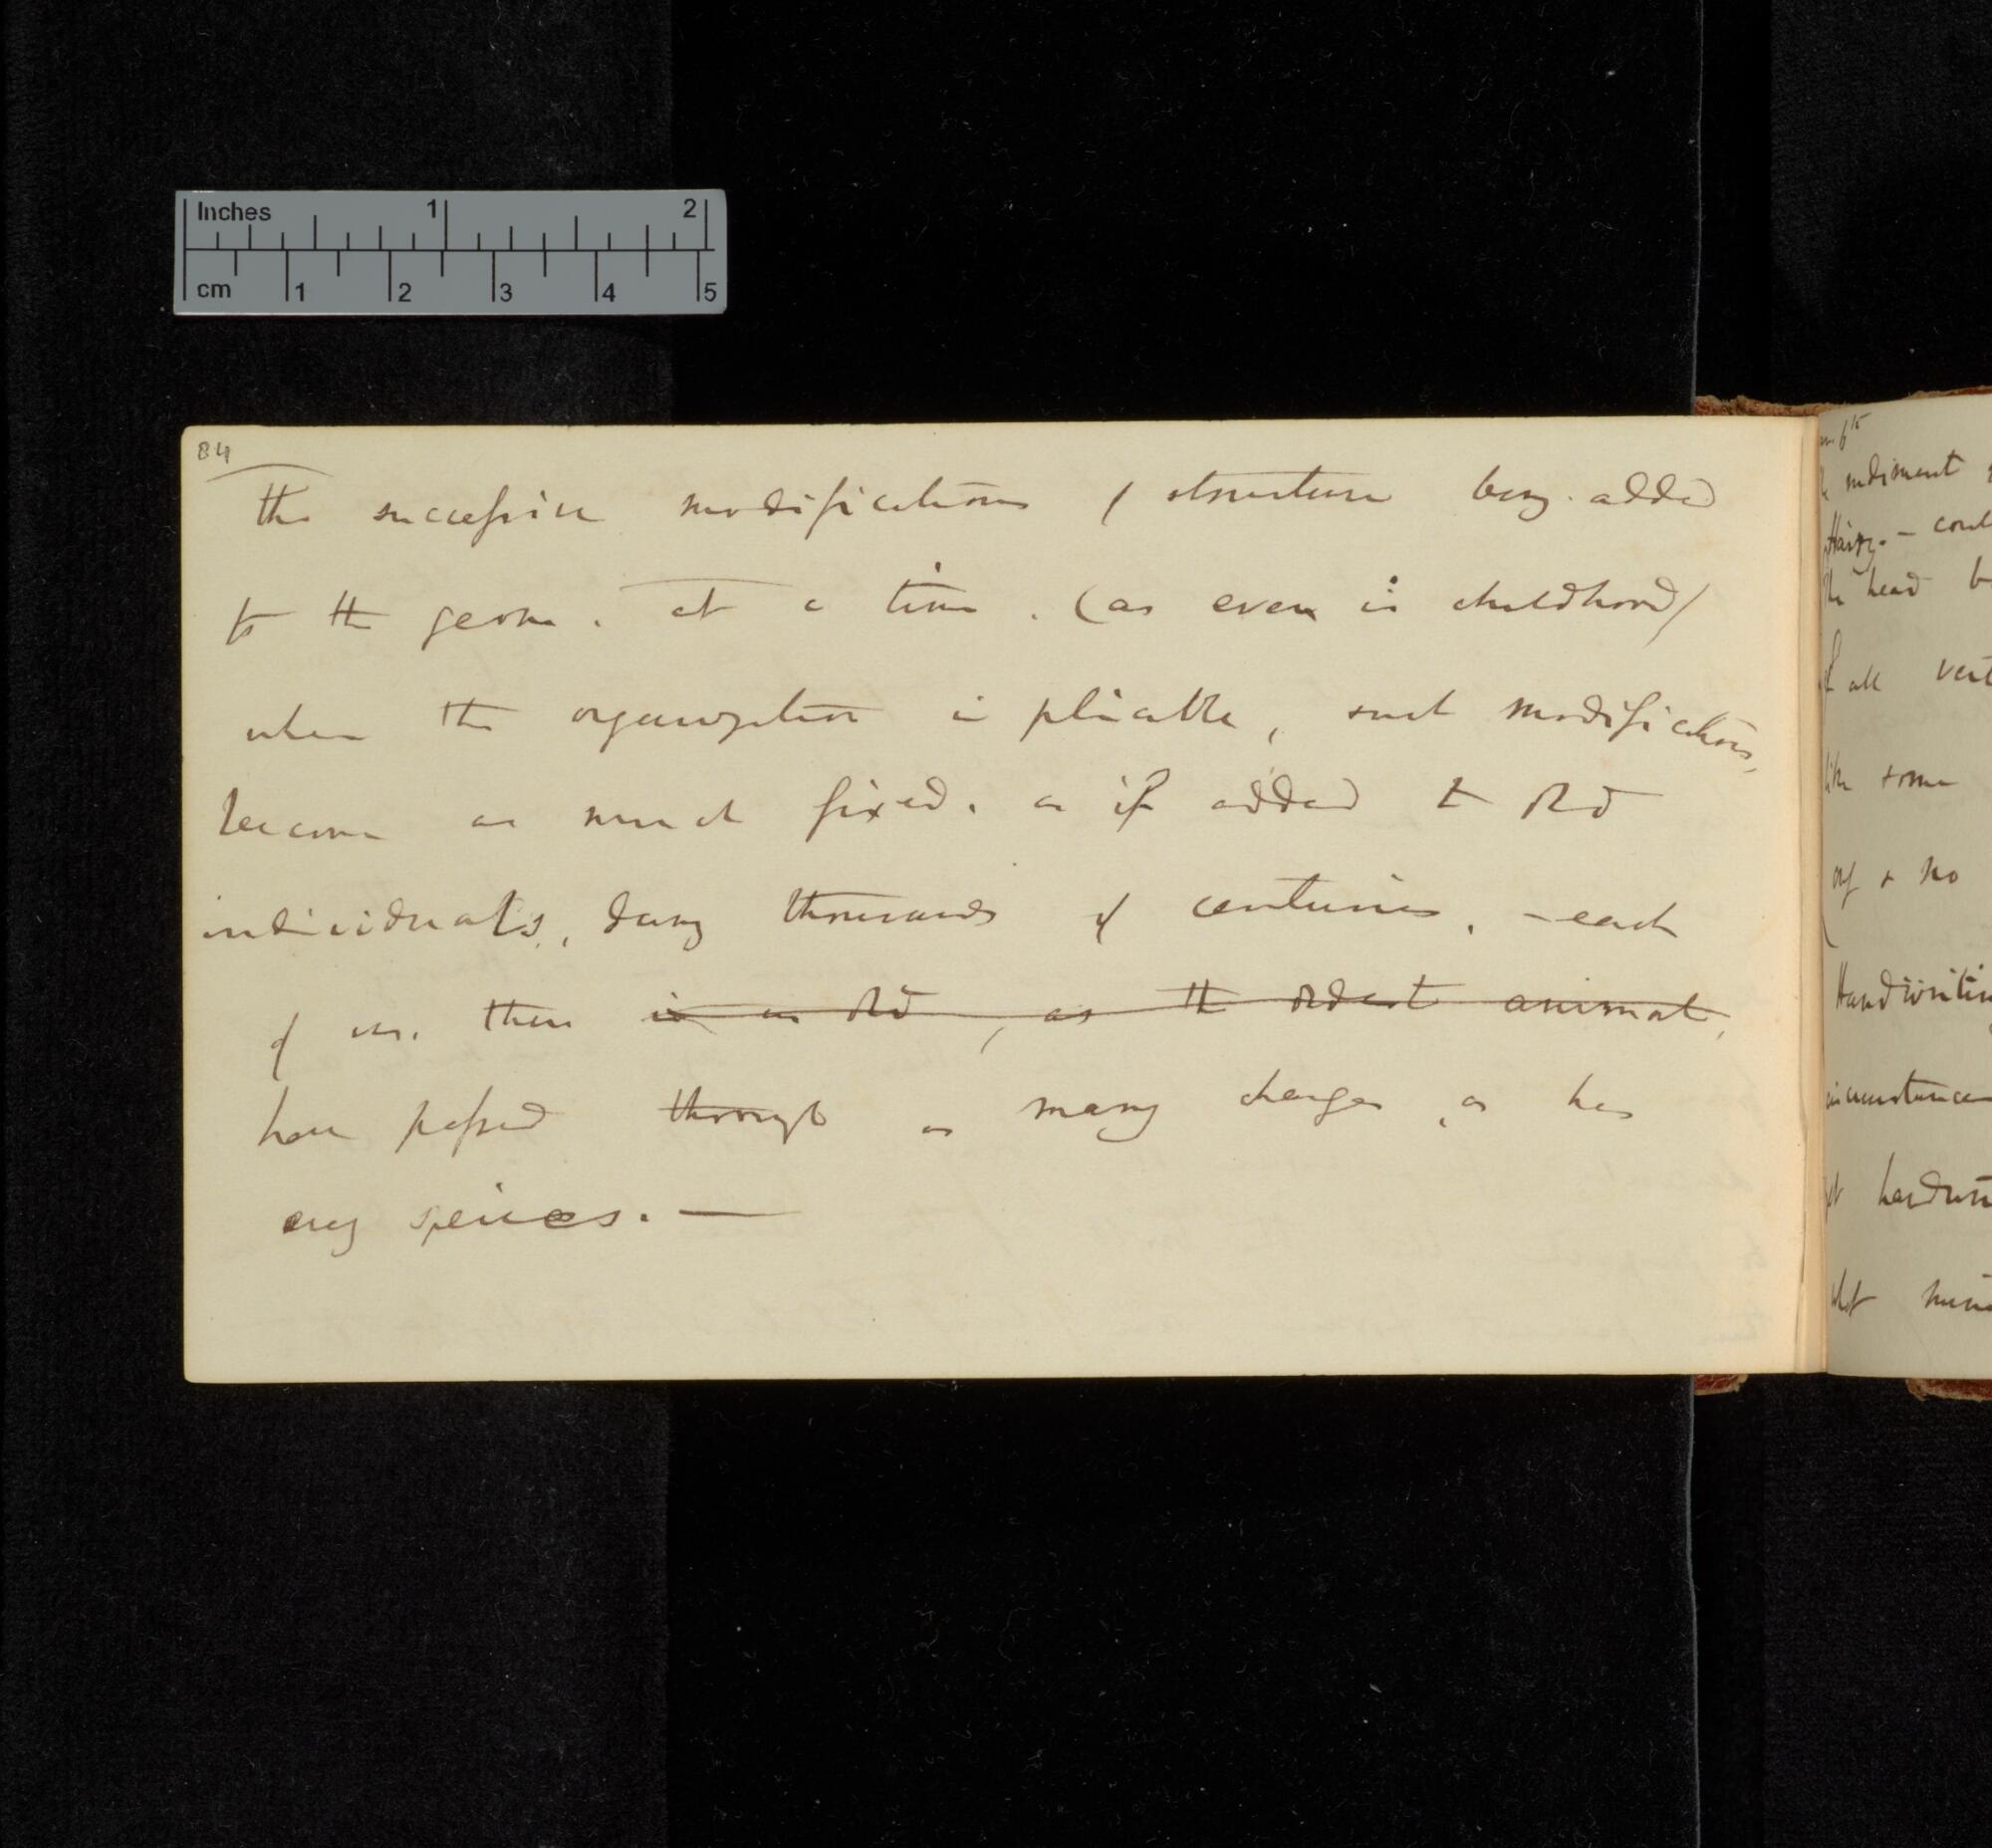 Inches 1 2
cm 1 2 3 4 5
84
The successive modifications of structure being added
to the germ, at a time, (as even in childhood)
when the organization is pliable, such modifications,
become as much fixed, as if added to old
individuals, during thousands of centuries, — each
of us, then is as old, as the oldest animal,
have passed through as many changes, as has
every species. —
rudiment
Hairy. —
the head
of all
like some
& no
Handwritin
circumstance